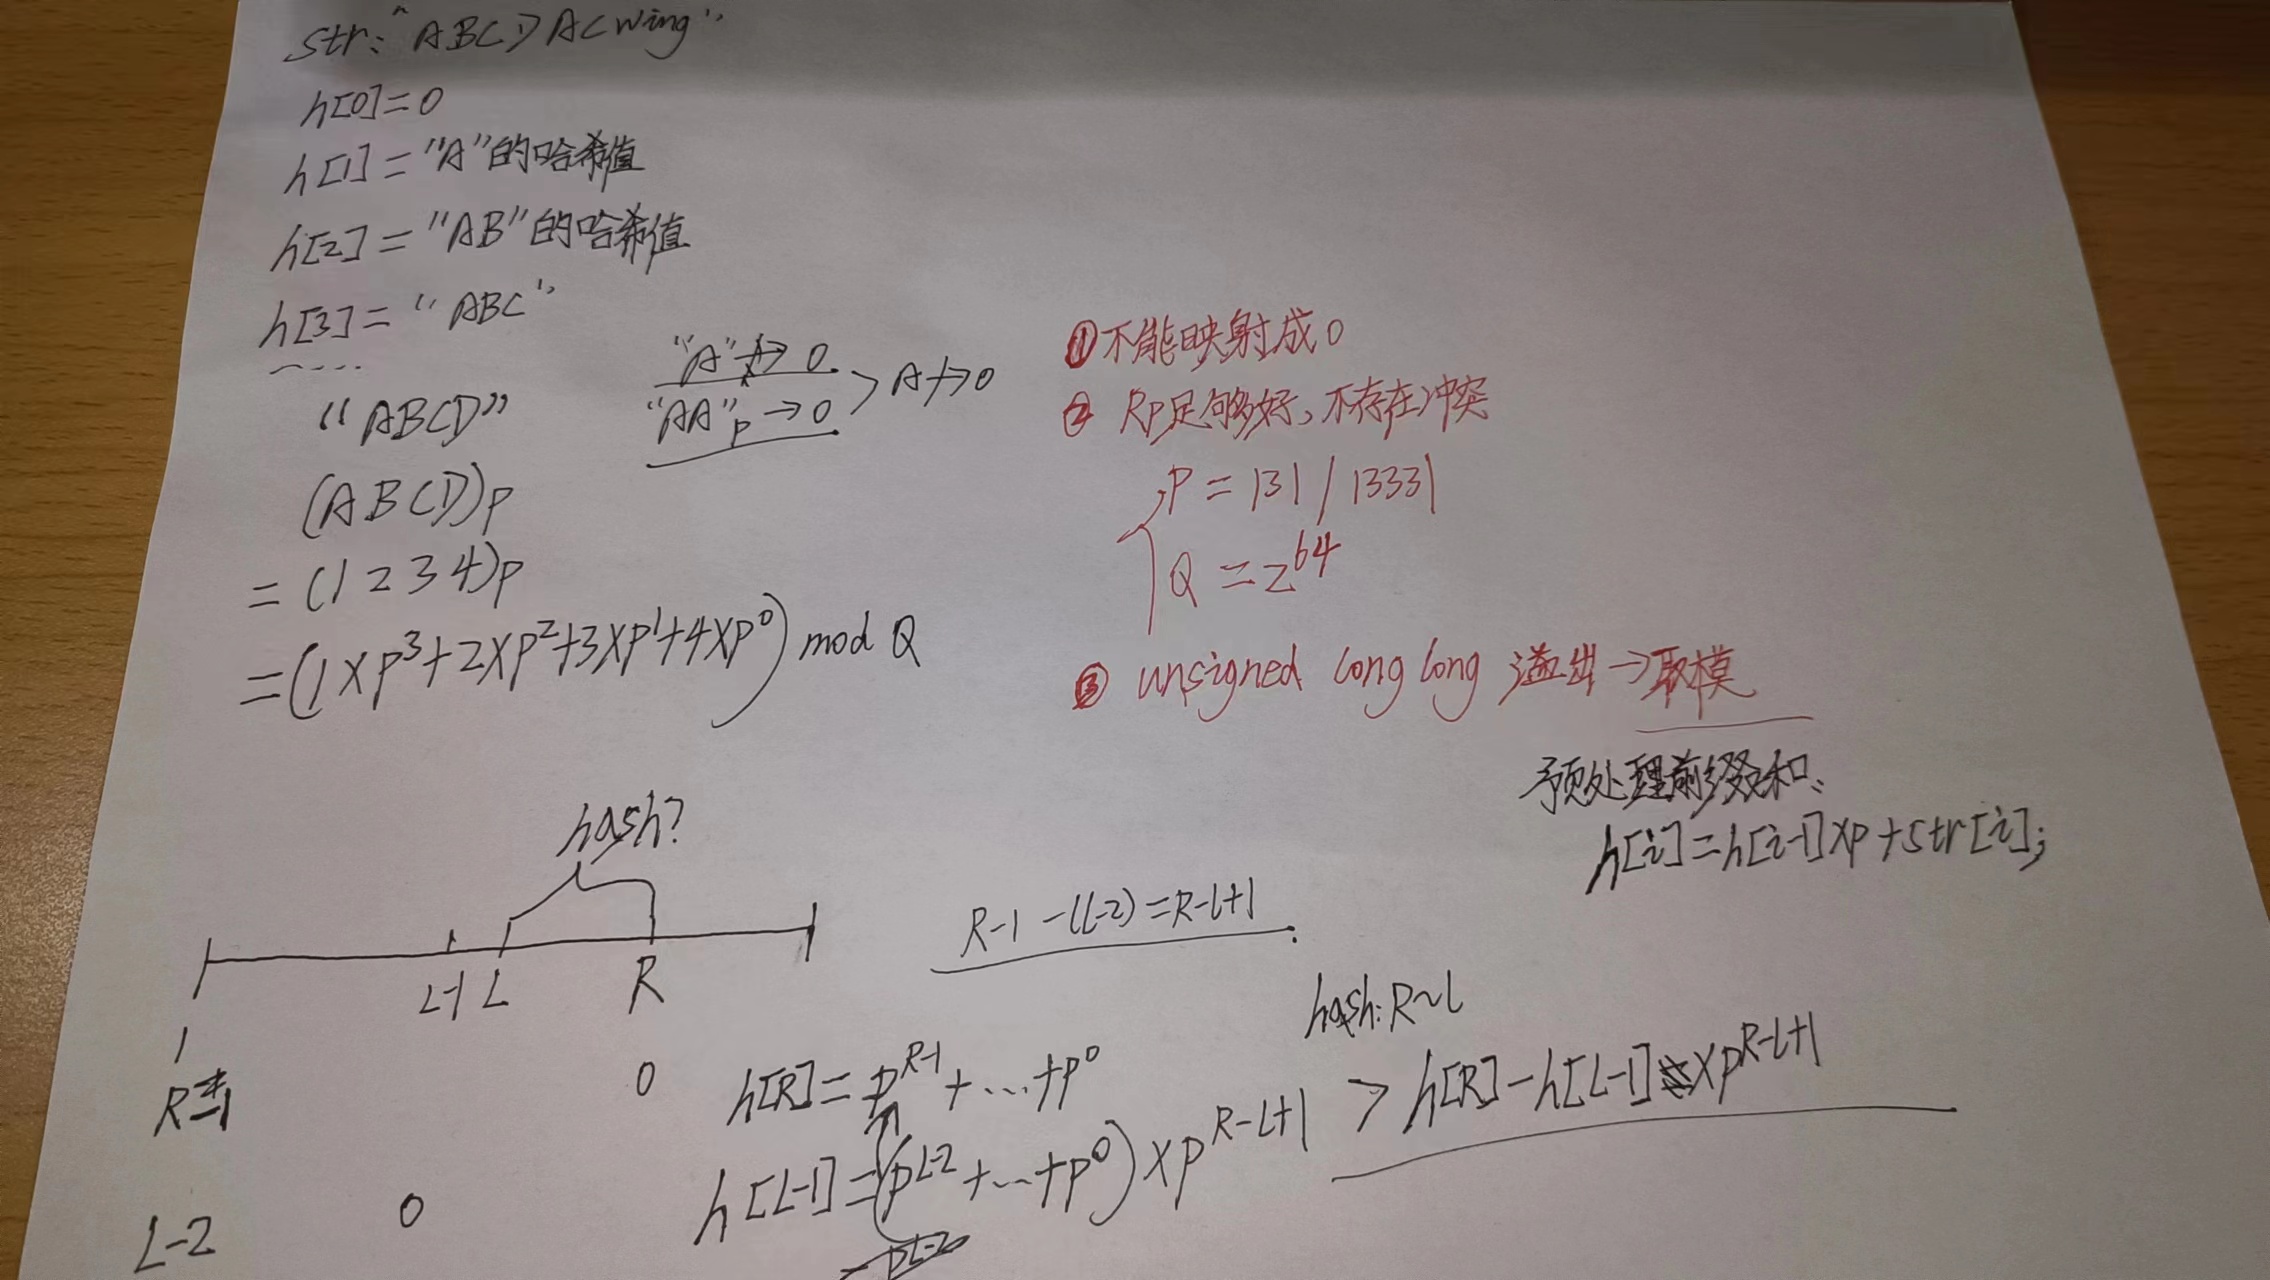 str: "ABCDACWing"
h[0]=0
h[1]="A"的哈希值
h[2]="AB"的哈希值
h[3]="ABC"
....
"ABCD"
(ABCD)p
=(1 2 3 4)p
=(1×p³+2×p²+3×p¹+4×p⁰) mod Q
"A" → 0
"AA"p → 0
> A↛0
①不能映射成0
② Rp足够好,不存在冲突
P = 131 / 13331
Q = 2⁶⁴
③ unsigned long long 溢出→取模
预处理前缀和
h[i]=h[i-1]×p+str[i];
hash?
L-1 L R
1
R-1 0
L-2 0
R-1-(L-2)=R-L+1
hash: R~L
h[R]=p^{R-1}+...+p⁰
h[L-1]=(p^{L-2}+...+p⁰)×p^{R-L+1}
> h[R]-h[L-1]×p^{R-L+1}